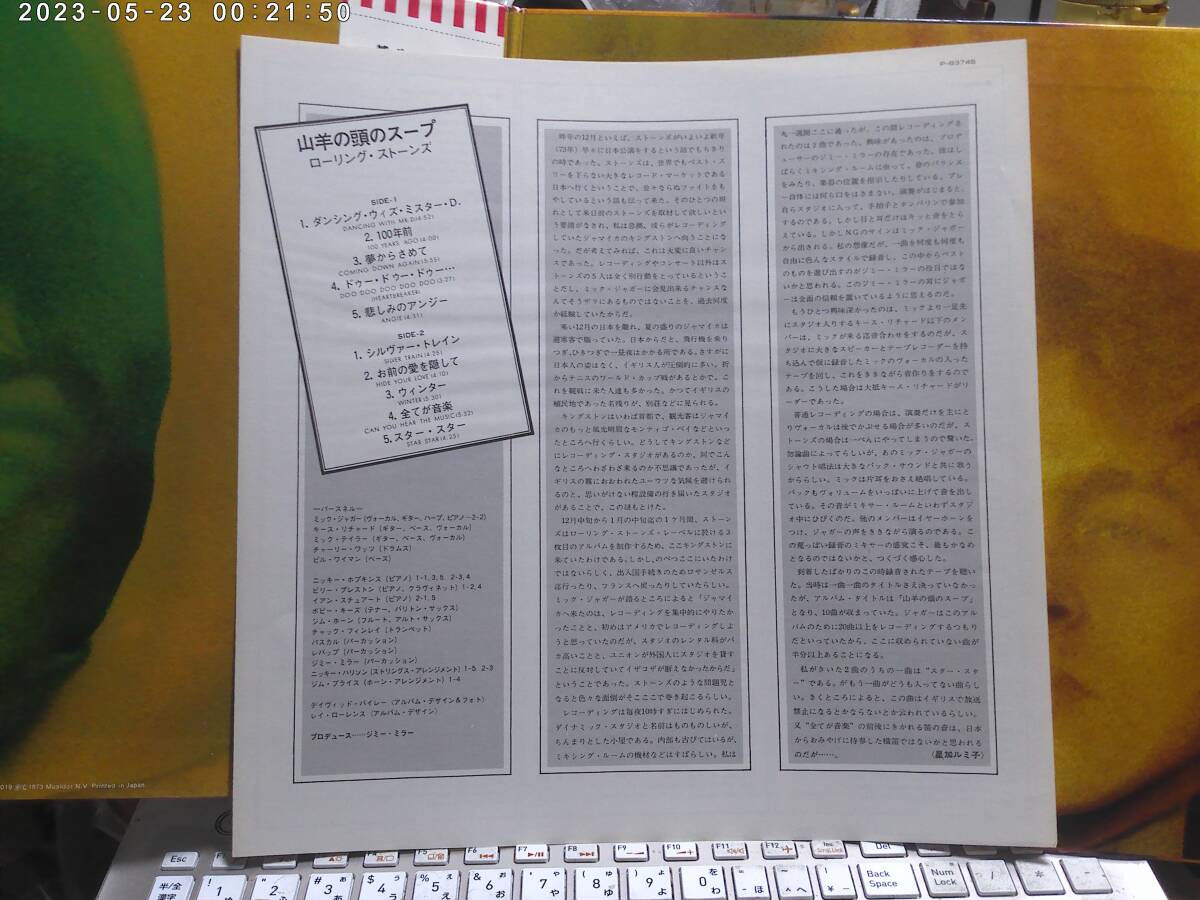 2023-05-23 00:21:50
P-8374S
山羊の頭のスープ
ローリング・ストーンズ
SIDE-1
1. ダンシング・ウィズ・ミスター・D.
DANCING WITH MR.D(4:52)
2. 100年前
100 YEARS AGO(4:00)
3. 夢からさめて
COMING DOWN AGAIN(5:55)
4. ドゥー・ドゥー・ドゥー…
DOO DOO DOO DOO DOO (3:27)
(HEARTBREAKER)
5. 悲しみのアンジー
ANGIE(4:31)
SIDE-2
1. シルヴァー・トレイン
SILVER TRAIN(4:25)
2. お前の愛を隠して
HIDE YOUR LOVE(4:10)
3. ウィンター
WINTER(5:30)
4. 全てが音楽
CAN YOU HEAR THE MUSIC(5:32)
5. スター・スター
STAR STAR(4:25)
—パースネル—
ミック・ジャガー(ヴォーカル、ギター、ハープ、ピアノ—2-2)
キース・リチャード(ギター、ベース、ヴォーカル)
ミック・テイラー(ギター、ベース、ヴォーカル)
チャーリー・ワッツ(ドラムス)
ビル・ワイマン(ベース)
ニッキー・ホプキンス(ピアノ) 1-1,3,5. 2-3,4
ビリー・プレストン(ピアノ、クラヴィネット) 1-2,4
イアン・スチュアート(ピアノ) 2-1,5
ボビー・キーズ(テナー、バリトン・サックス)
ジム・ホーン(フルート、アルト・サックス)
チャック・フィンレイ(トランペット)
パスカル(パーカッション)
レバップ(パーカッション)
ジミー・ミラー(パーカッション)
ニッキー・ハリソン(ストリングス・アレンジメント) 1-5. 2-3
ジム・プライス(ホーン・アレンジメント) 1-4
デイヴィッド・ベイレー(アルバム・デザイン&フォト)
レイ・ローレンス(アルバム・デザイン)
プロデュース……ジミー・ミラー
昨年の12月といえば、ストーンズがいよいよ新年
(73年)早々に日本公演をするという話でもちきり
の時であった。ストーンズは、世界でもベスト・ス
リーを下らない大きなレコード・マーケットである
日本へ行くということで、並々ならぬファイトをも
やしているという話も伝って来た。そのひとつの現
れとして来日前のストーンズを取材して欲しいとい
う要請がなされ、私は急拠、彼らがレコーディング
していたジャマイカのキングストンへ向うことにな
った。だが考えてみれば、これは大変に良いチャン
スであった。レコーディングやコンサート以外はス
トーンズの5人は全く別行動をとっているというこ
とだし、ミック・ジャガーに会見出来るチャンスな
んてそうザラにあるものではないことを、過去何度
か経験していたからだ。
寒い12月の日本を離れ、夏の盛りのジャマイカは
避寒客で賑っていた。日本からだと、飛行機を乗り
つぎ、ひきつぎで一昼夜はかかる所である。さすがに
日本人の姿はなく、イギリス人が圧倒的に多い。折
からテニスのワールド・カップ戦があるとかで、こ
れを観戦に来た人達も多かった。かつてイギリスの
植民地であった名残りが、別荘などに見られる。
キングストンはいわば首都で、観光客はジャマイ
カのもっと風光明眉なモンティゴ・ベイなどといっ
たところへ行くらしい。どうしてキングストンなど
にレコーディング・スタジオがあるのか、何でこん
なところへわざわざ来るのか不思議であったが、イ
ギリスの霧におおわれたユーウツな気候を避けられ
るのと、思いがけない程設備の行き届いたスタジオ
があることで、この謎もとけた。
12月中旬から1月の中旬迄の1ケ月間、ストーン
ズはローリング・ストーンズ・レーベルに於ける3
枚目のアルバムを制作するため、ここキングストンに
来ていたわけである。しかし、のべつここにいたわけ
ではないらしく、出入国手続きのためロサンゼルス
迄行ったり、フランスへ戻ったりしていたらしい。
ミック・ジャガーが語るところによると「ジャマイ
カへ来たのは、レコーディングを集中的にやりたか
ったことと、初めはアメリカでレコーディングしよ
うと思っていたのだが、スタジオのレンタル料がバ
カ高いことと、ユニオンが外国人にスタジオを貸す
ことに反対していてイザコザが絶えなかったからだ」
ということであった。ストーンズのような問題児と
なると色々な面倒がそこここで巻き起こるらしい。
レコーディングは毎夜10時すぎにはじめられた。
ダイナミック・スタジオと名前はものものしいが、
ちんまりとした小屋である。内部も古びてはいるが、
ミキシング・ルームの機材などはすばらしい。私は
丸一週間ここに通ったが、この間レコーディングさ
れたのは2曲であった。興味があったのは、プロデ
ューサーのジミー・ミラーの存在であった。彼はし
ばらくミキシング・ルームに座って、音のバランス
をみたり、楽器の位置を指示したりしている。プレ
ー自体には何ら口をはさまない。演奏がはじまると、
自らスタジオに入って、手拍子とタンバリンで参加
するのである。しかし目と耳だけはキッと音をとら
えている。しかしNGのサインはミック・ジャガー
から出される。私の想像だが、一曲を何度も何度も
自由に色んなスタイルで録音し、この中からベスト
のものを選び出すのがジミー・ミラーの役目ではな
いかと思われる。このジミー・ミラーの耳にジャガ
ーは全面の信頼を置いているように思えるのだ。
もうひとつ興味深かったのは、ミックより一足先
にスタジオ入りするキース・リチャード以下のメン
バーは、ミックが来る迄音合わせをするのだが、ス
タジオに大きなスピーカーとテープレコーダーを持
ち込んで仮に録音したミックのヴォーカルの入った
テープを回し、これをききながら音作りをするので
ある。こうした場合は大抵キース・リチャードがリ
ーダーであった。
普通レコーディングの場合は、演奏だけを主にと
りヴォーカルは後でかぶせる場合が多いのだが、ス
トーンズの場合は一ぺんにやってしまうので驚いた。
勿論曲によってらしいが、あのミック・ジャガーの
シャウト唱法は大きなバック・サウンドと共に歌う
かららしい。ミックは片耳をおさえ絶唱している。
バックもヴォリュームをいっぱいに上げて音を出し
ている。その音がミキサー・ルームといわずスタジ
オ中にひびくのだ。他のメンバーはイヤーホーンを
つけ、ジャガーの声をききながら演るのである。こ
の荒っぽい録音のミキサーの感覚こそ、最もかなめ
となるのではないかと、つくづく感心した。
到着したばかりのこの時録音されたテープを聴い
た。当時は一曲一曲のタイトルさえ決っていなかっ
たが、アルバム・タイトルは「山羊の頭のスープ」
となり、10曲が収まっていた。ジャガーはこのアル
バムのために20曲以上をレコーディングするつもり
だといっていたから、ここに収められていない曲が
半分以上あることになる。
私がきいた2曲のうちの一曲は“スター・スタ
ー”である。がもう一曲がどうも入ってない曲らし
い。きくところによると、この曲はイギリスで放送
禁止になるとかならないとか云われているらしい。
又“全てが音楽”の前後にきかれる笛の音は、日本
からおみやげに持参した横笛ではないかと思われる
のだが……。 (星加ルミ子)
019 ℗© 1973 Musidor N.V. Printed in Japan
Esc
F5
F6
F7
F8
F9
F10
F11
F12
Ins
ScrLock
Del
半/全
漢字
! 1 ぬ
" 2 ふ
# 3 あ
$ 4 う
% 5 え
& 6 お
' 7 や
( 8 ゆ
) 9 よ
0 わ
= - ほ
~ ^ へ
| ¥ ー
Back
Space
Num
Lock
/
*
-